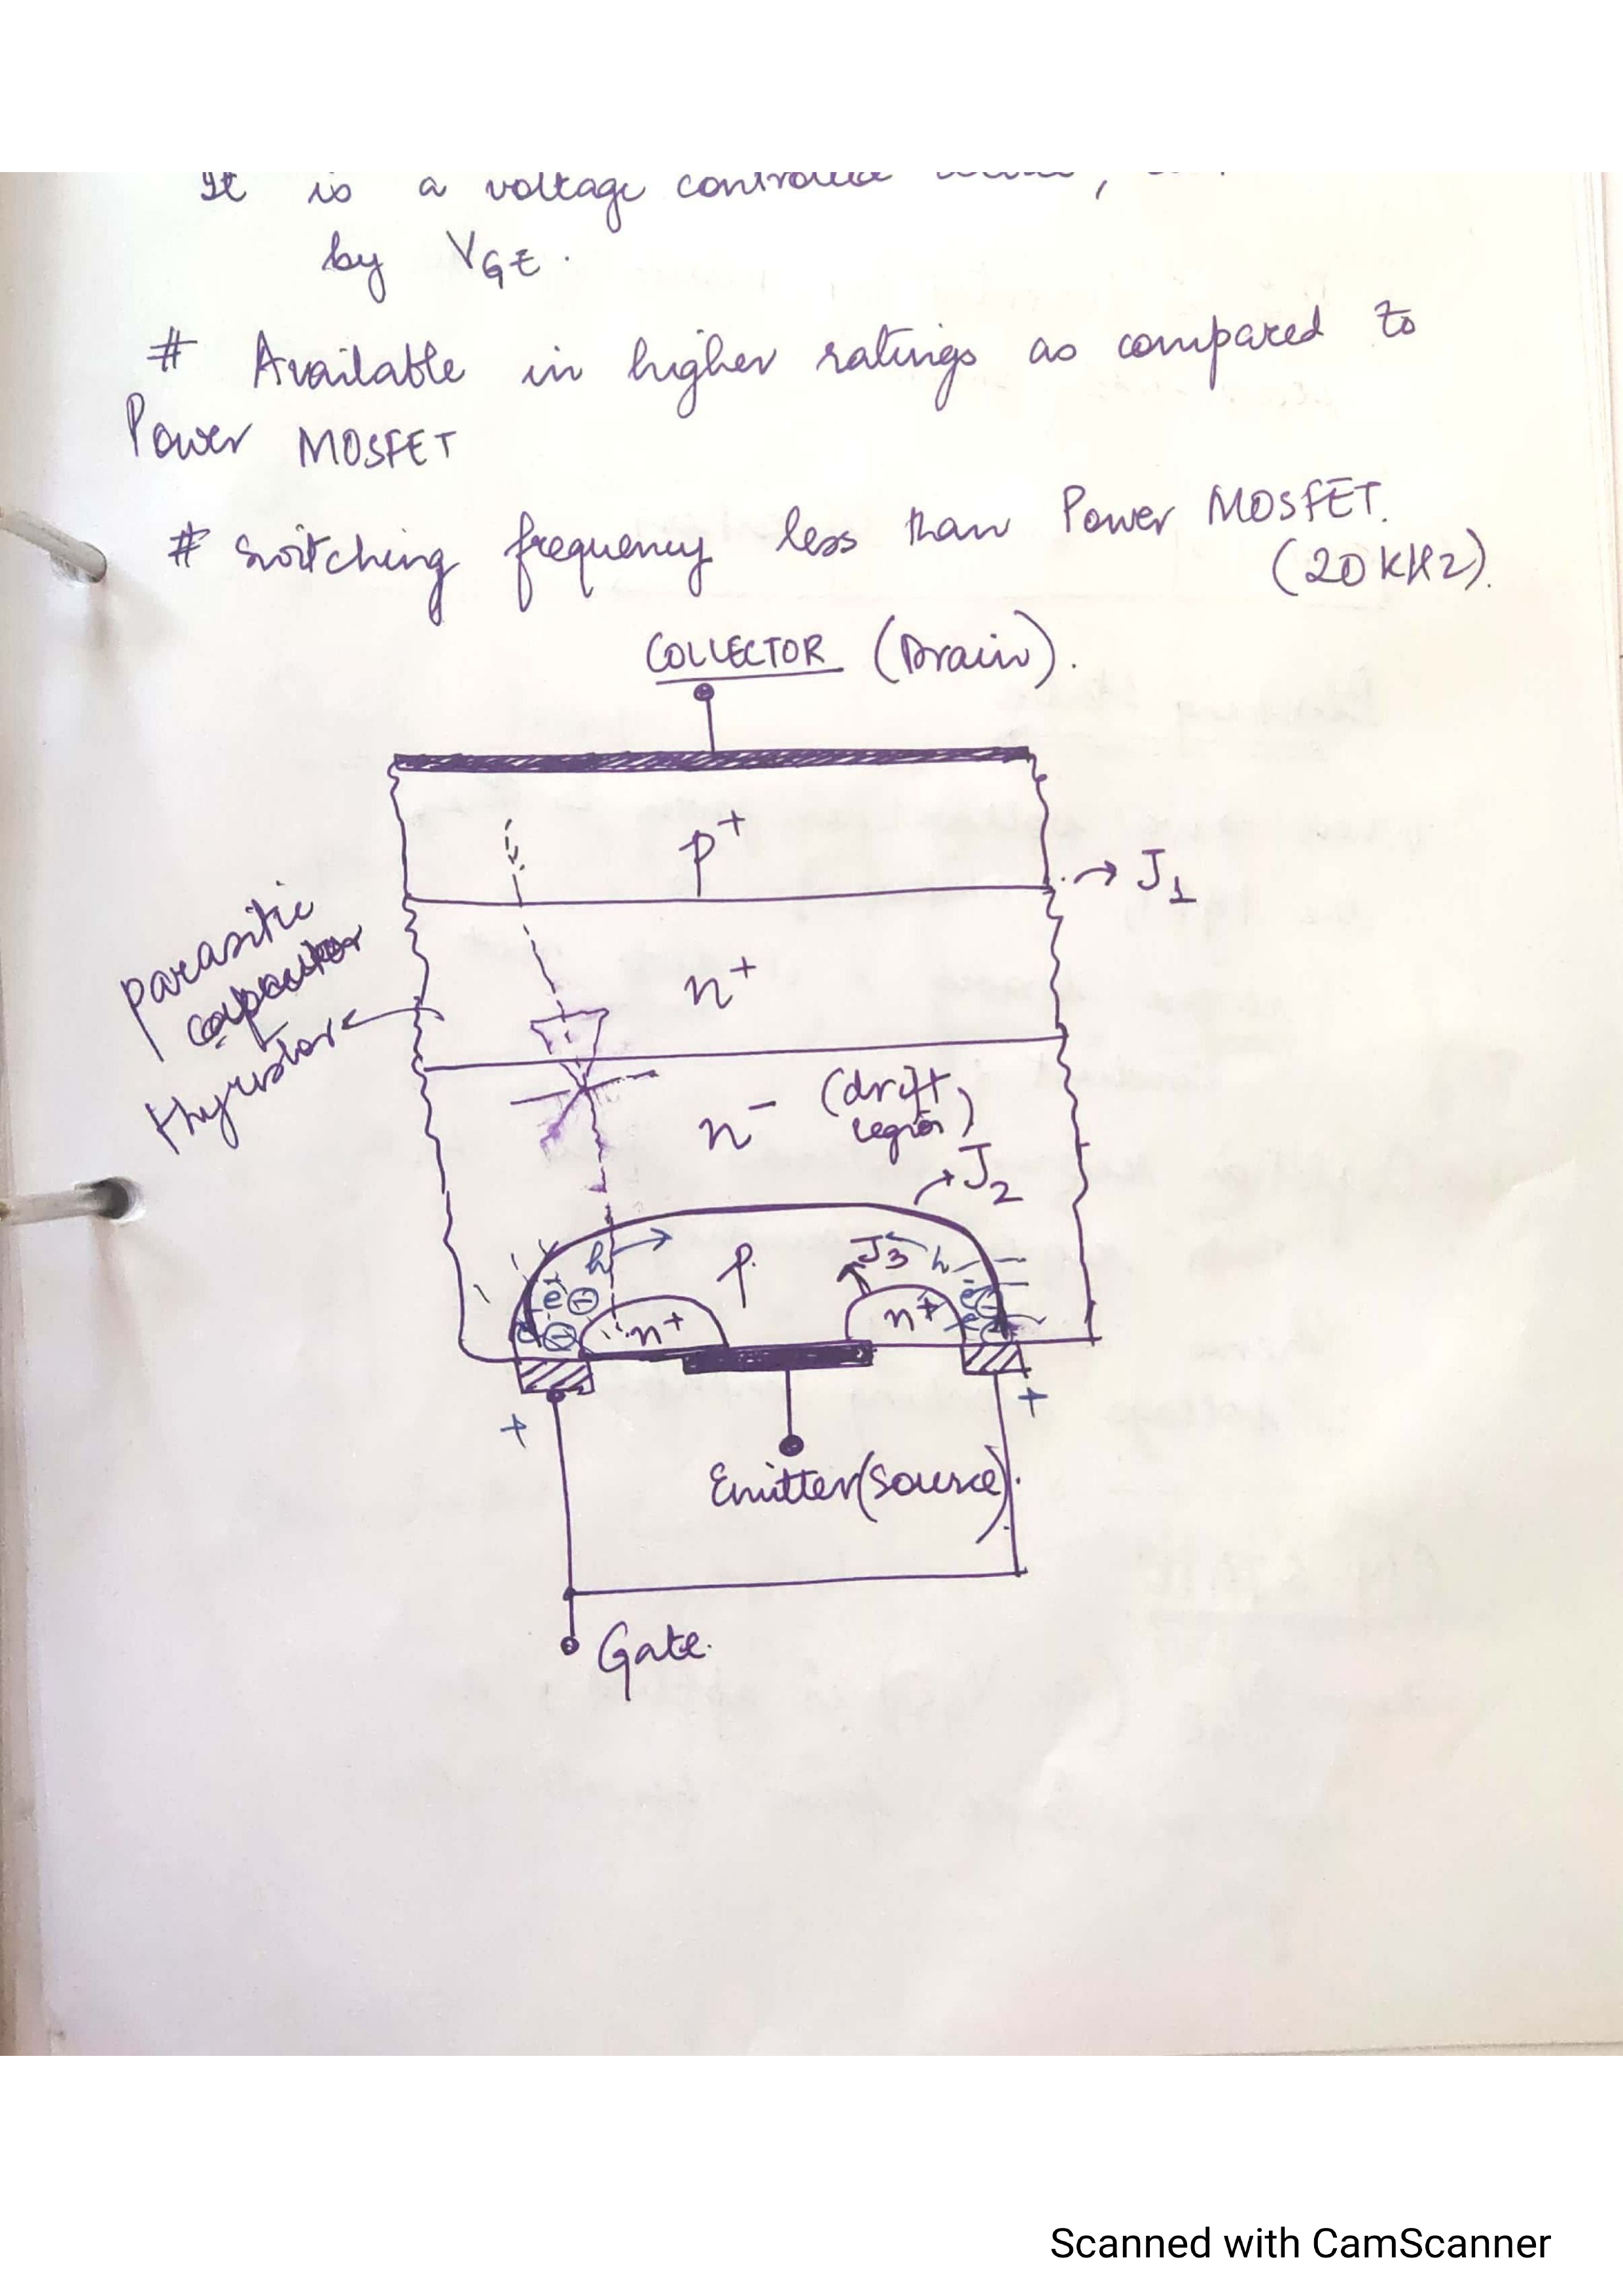 It is a voltage controlled
by VGE.
# Available in higher ratings as compared to
Power MOSFET
# Switching frequency less than Power MOSFET.
(20 KHz).
COLLECTOR (Drain).
p+
→ J1
parasitic
capacitor
thyristor
n+
n- (drift
region)
J2
h
p
J3
h
e-
e-
n+
n+
e-
+
+
Emitter (Source).
Gate.
Scanned with CamScanner